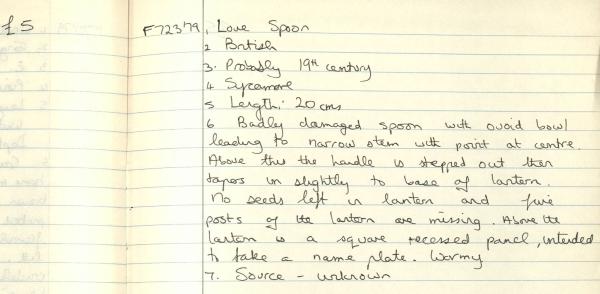 £5 F72379 1 Love Spoon
2 British
3. Probably 19th century
4 Sycamore
5 Length: 20 cms
6 Badly damaged spoon with ovoid bowl
leading to narrow stem with point at centre.
Above this the handle is stepped out then
tapers in slightly to base of lantern.
No seeds left in lantern and five
posts of the lantern are missing. Above the
lantern is a square recessed panel, intended
to take a name plate. Wormy
7. Source - unknown